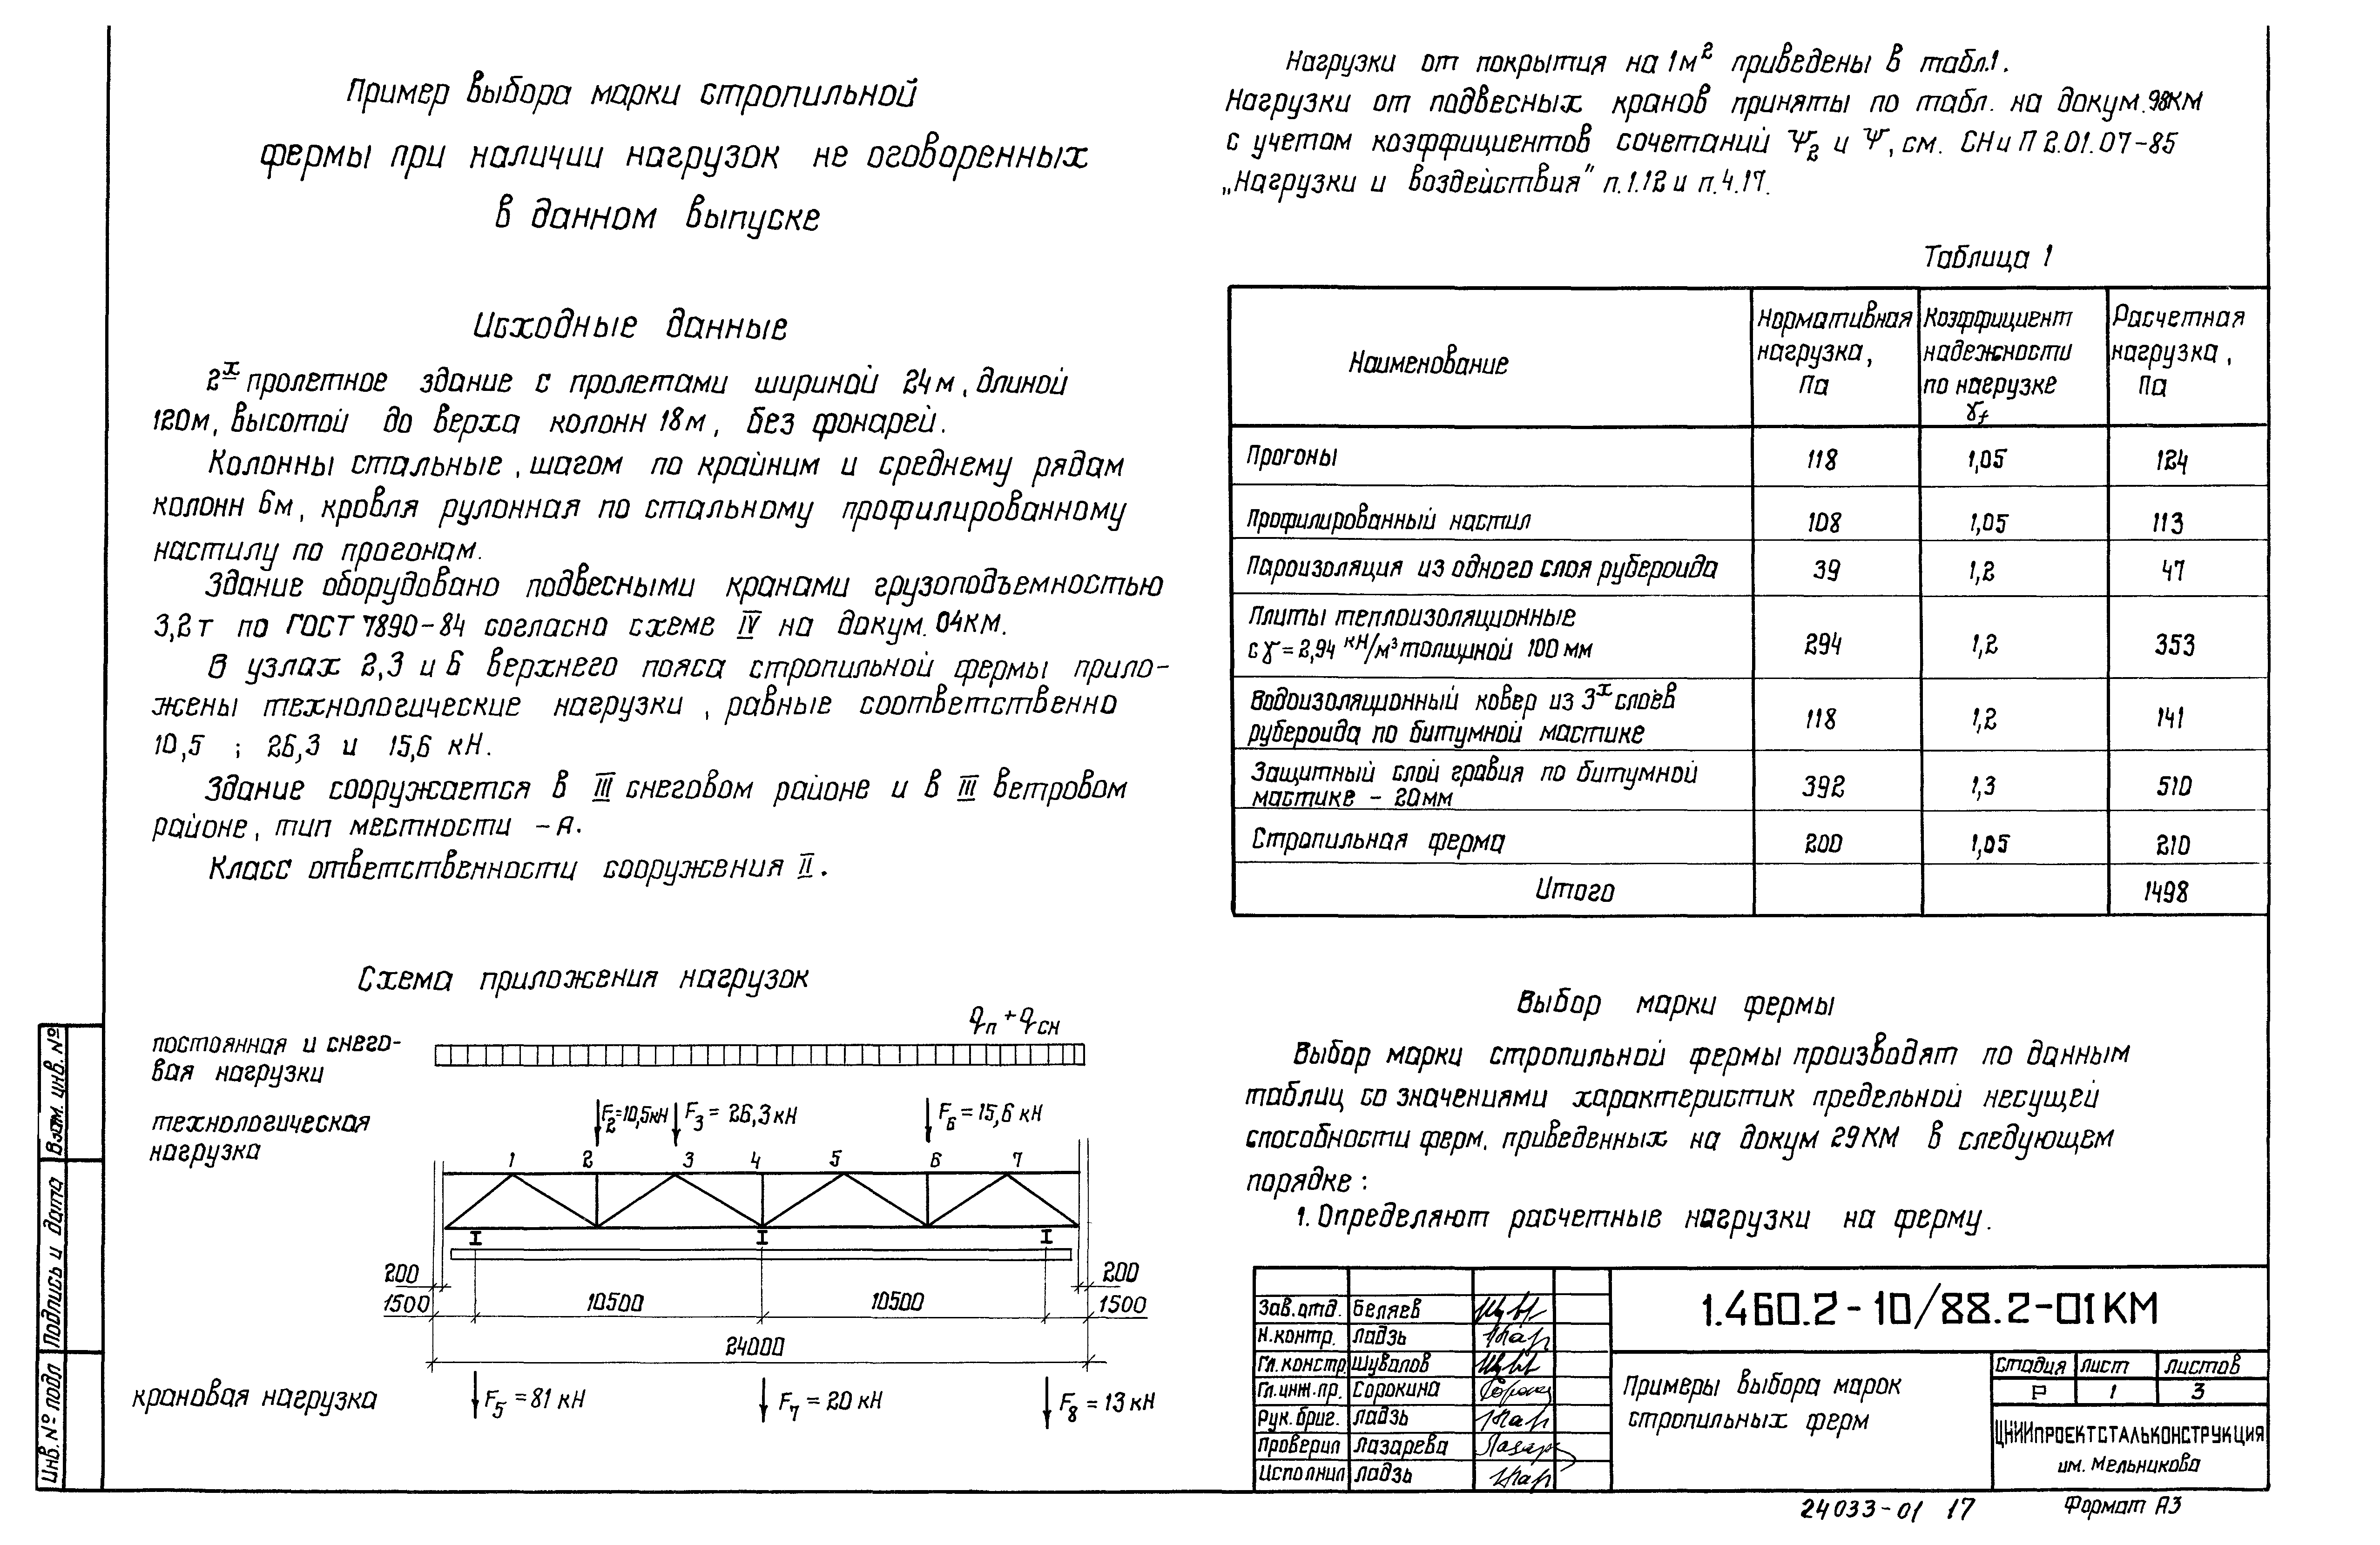 Пример выбора марки стропильной
фермы при наличии нагрузок не оговоренных
в данном выпуске
Исходные данные
2х пролетное здание с пролетами шириной 24м, длиной
120м, высотой до верха колонн 18м, без фонарей.
Колонны стальные, шагом по крайним и среднему рядам
колонн 6м, кровля рулонная по стальному профилированному
настилу по прогонам.
Здание оборудовано подвесными кранами грузоподъемностью
3,2т по ГОСТ 7890-84 согласно схеме IV на докум. 04КМ.
В узлах 2,3 и 6 верхнего пояса стропильной фермы прило-
жены технологические нагрузки, равные соответственно
10,5 ; 26,3 и 15,6 кН.
Здание сооружается в III снеговом районе и в III ветровом
районе, тип местности -А.
Класс ответственности сооружения II.
Схема приложения нагрузок
qп + qсн
постоянная и снего-
вая нагрузки
технологическая
нагрузка
F2=10,5кН F3 = 26,3 кН F6 = 15,6 кН
1 2 3 4 5 6 7
200 200
1500 10500 10500 1500
24000
крановая нагрузка F5 = 81 кН F7 = 20 кН F8 = 13 кН
Нагрузки от покрытия на 1м² приведены в табл.1.
Нагрузки от подвесных кранов приняты по табл. на докум.98КМ
с учетом коэффициентов сочетаний Ψ2 и Ψ, см. СНиП 2.01.07-85
„Нагрузки и воздействия" п.1.12 и п.4.17.
Таблица 1
Наименование Нормативная нагрузка, Па Коэффициент надежности по нагрузке γf Расчетная нагрузка, Па
Прогоны 118 1,05 124
Профилированный настил 108 1,05 113
Пароизоляция из одного слоя рубероида 39 1,2 47
Плиты теплоизоляционные
с γ = 2,94 кН/м³ толщиной 100 мм 294 1,2 353
Водоизоляционный ковер из 3х слоёв
рубероида по битумной мастике 118 1,2 141
Защитный слой гравия по битумной
мастике - 20мм 392 1,3 510
Стропильная ферма 200 1,05 210
Итого 1498
Выбор марки фермы
Выбор марки стропильной фермы производят по данным
таблиц со значениями характеристик предельной несущей
способности ферм, приведенных на докум 29КМ в следующем
порядке:
1. Определяют расчетные нагрузки на ферму.
Зав.отд. Беляев
Н.контр. Ладзь
Гл.констр. Шувалов
Гл.инж.пр. Сорокина
Рук.бриг. Ладзь
Проверил Лазарева
Исполнил Ладзь
1.460.2-10/88.2-01КМ
Примеры выбора марок
стропильных ферм
Стадия Лист Листов
Р 1 3
ЦНИИПРОЕКТСТАЛЬКОНСТРУКЦИЯ
им. Мельникова
24033-01 17 Формат А3
Инв. № подл Подпись и дата Взам. инв. №